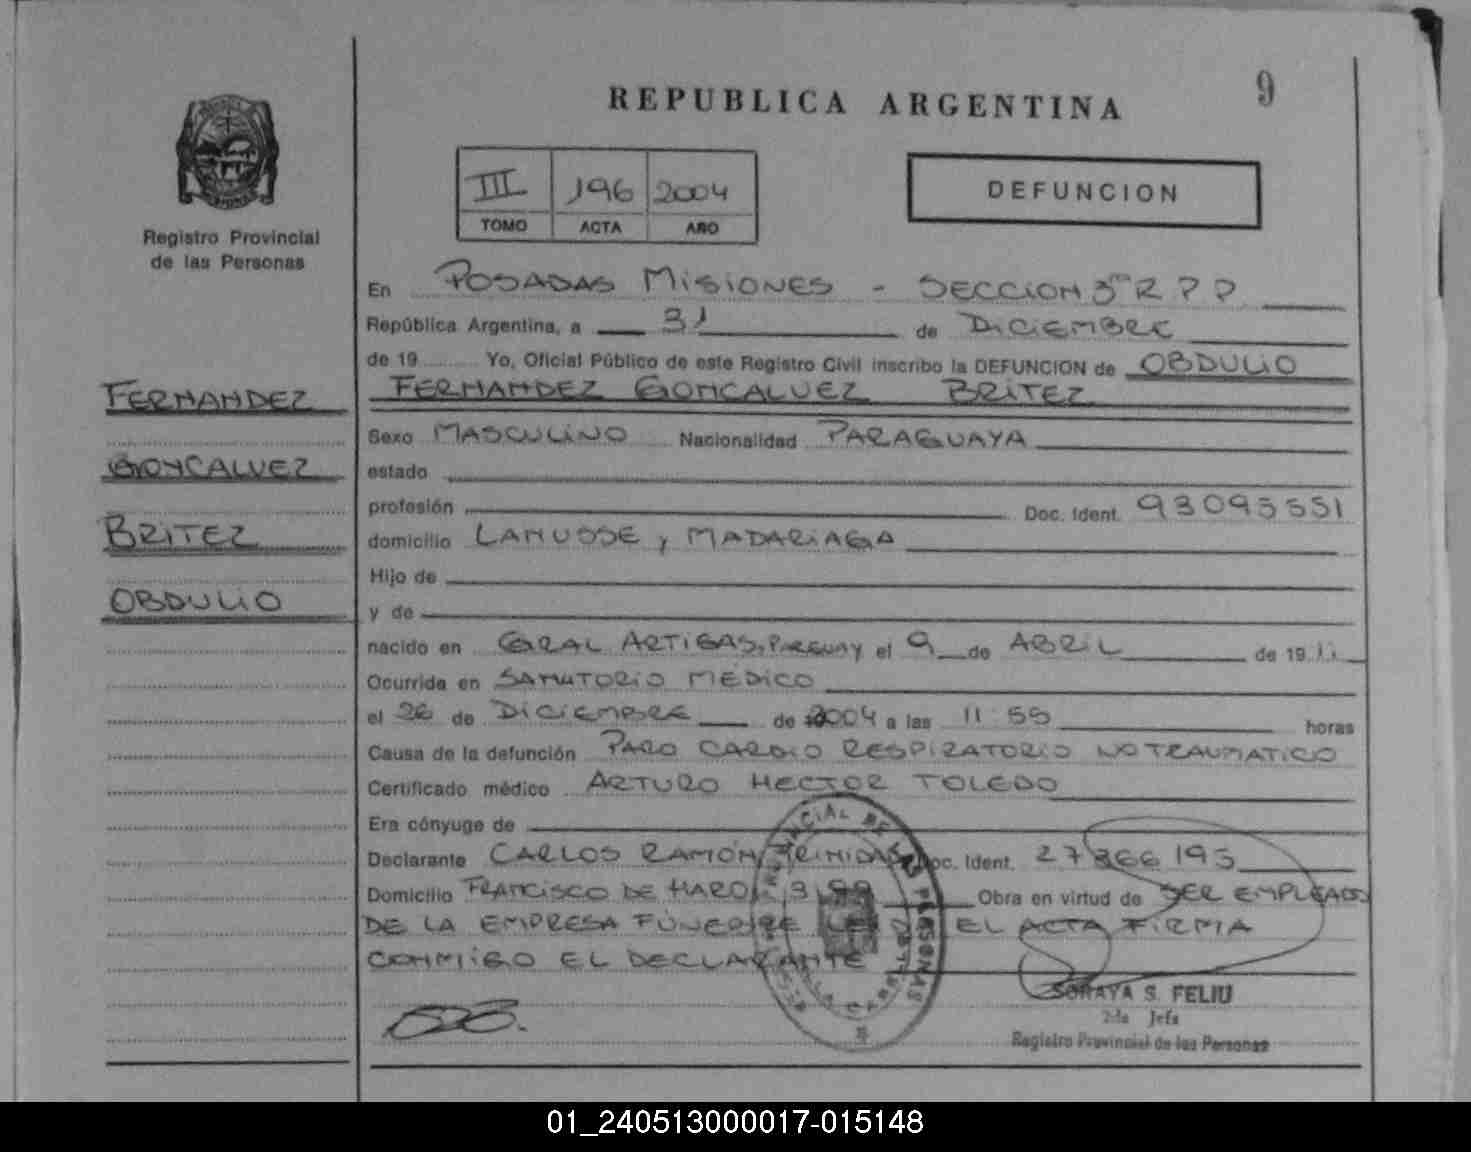 REPUBLICA ARGENTINA
9
III 196 2004
TOMO ACTA AÑO
DEFUNCION
Registro Provincial
de las Personas
FERNANDEZ
GONCALVEZ
BRITEZ
OBDULIO
En POSADAS MISIONES - SECCION 3ra R P P
República Argentina, a 31 de DICIEMBRE
de 19 Yo, Oficial Público de este Registro Civil inscribo la DEFUNCION de OBDULIO
FERNANDEZ GONCALVEZ BRITEZ
Sexo MASCULINO Nacionalidad PARAGUAYA
estado
profesión Doc. Ident. 93095551
domicilio LANUSSE y MADARIAGA
Hijo de
y de
nacido en GRAL ARTIGAS, PARAGUAY el 9 de ABRIL de 1911
Ocurrida en SANATORIO MEDICO
el 26 de DICIEMBRE de 2004 a las 11 55 horas
Causa de la defunción PARO CARDIO RESPIRATORIO NO TRAUMATICO
Certificado médico ARTURO HECTOR TOLEDO
Era cónyuge de
Declarante CARLOS RAMON TRINIDAD Doc. Ident. 27366195
Domicilio FRANCISCO DE HARO Obra en virtud de SER EMPLEADO
DE LA EMPRESA FUNEBRE EL ACTA FIRMA
CONMIGO EL DECLARANTE
SORAYA S. FELIU
2da Jefa
Registro Provincial de las Personas
01_240513000017-015148